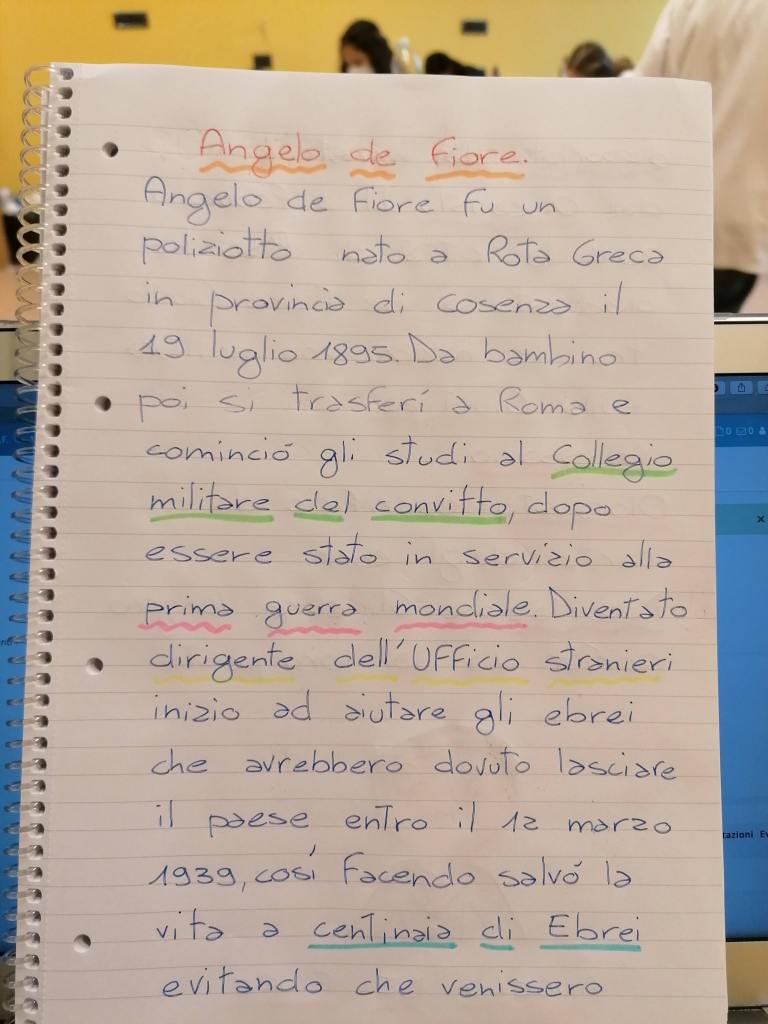 Angelo de Fiore.
Angelo de Fiore fu un
poliziotto nato a Rota Greca
in provincia di cosenza il
19 luglio 1895. Da bambino
poi si trasferí a Roma e
cominció gli studi al Collegio
militare del convitto, dopo
essere stato in servizio alla
prima guerra mondiale. Diventato
dirigente dell'Ufficio stranieri
inizio ad aiutare gli ebrei
che avrebbero dovuto lasciare
il paese entro il 12 marzo
1939, cosí facendo salvó la
vita a centinaia di Ebrei
evitando che venissero